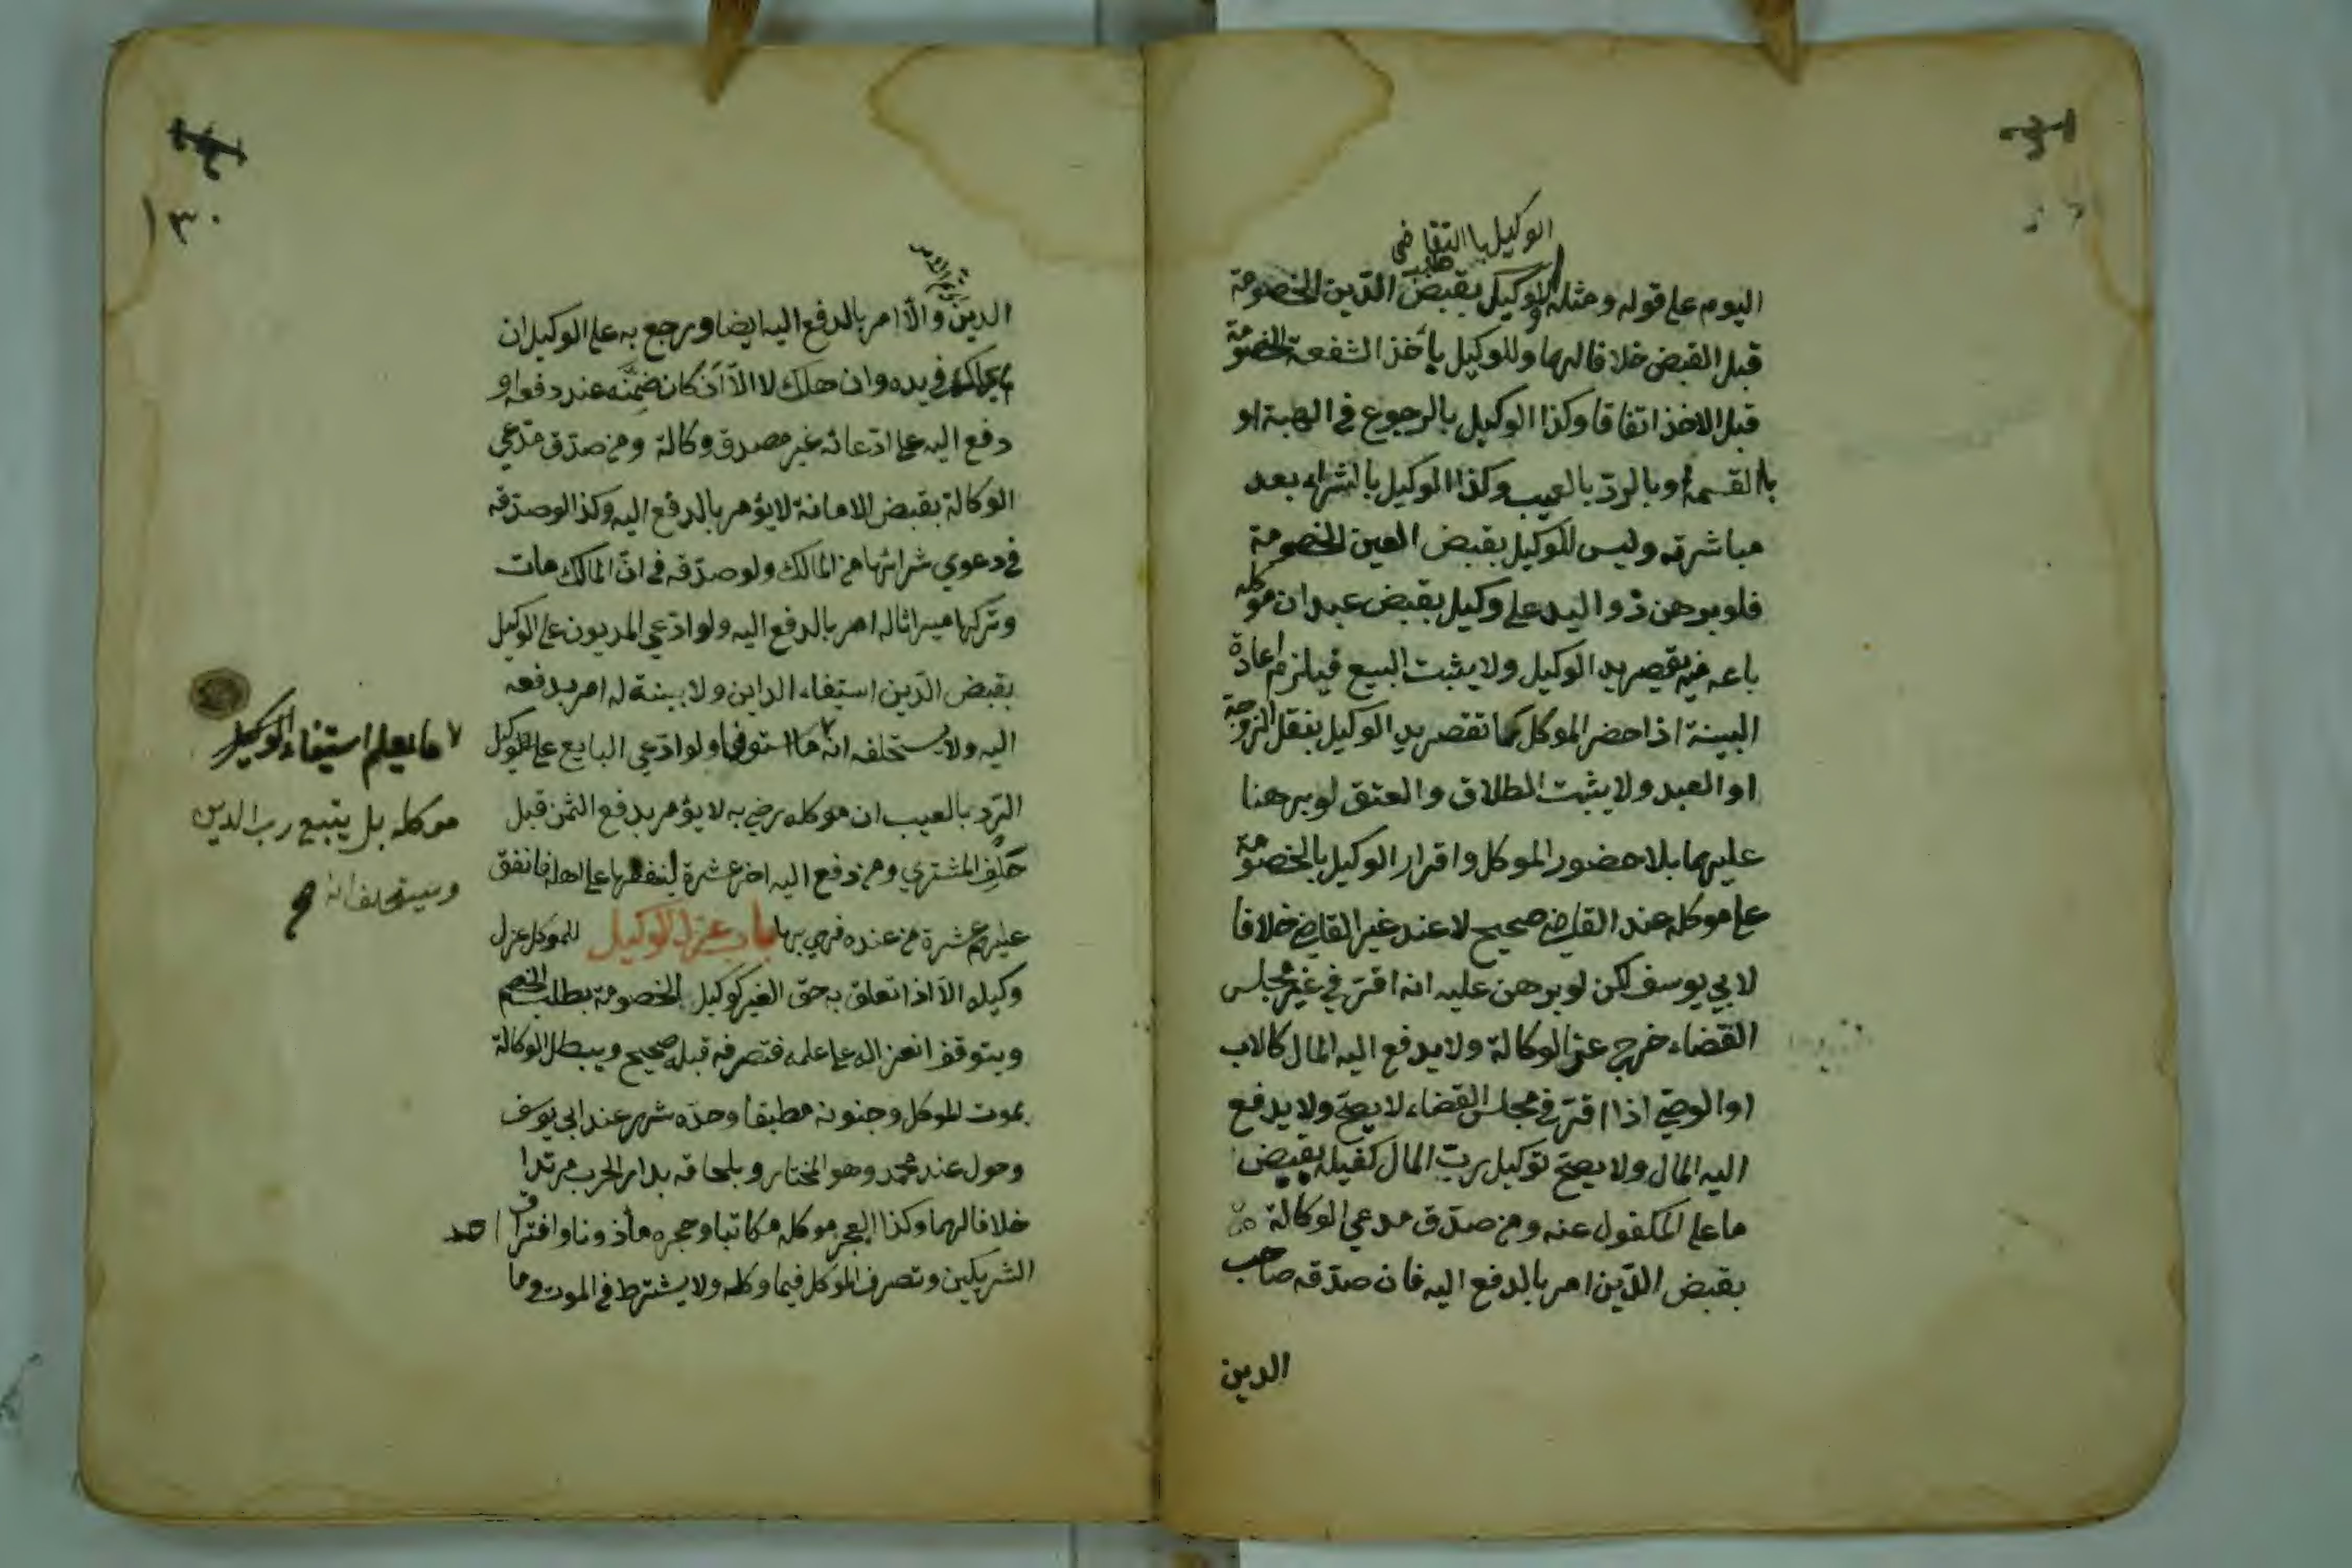 الوكيل بالتقاضي
اليوم على قوله ومثله الوكيل بقبض الدّين الخصومة
قبل القبض خلافا لهما وللوكيل بأخذ الشفعة الخصومة
قبل الاخذ اتفاقا وكذا الوكيل بالرجوع في الهبة او
بالقسمة او بالردّ بالعيب وكذا الوكيل بالشراء بعد
مباشرته وليس للوكيل بقبض العين الخصومة
فلو برهن ذو اليد على وكيل بقبض عبد ان موكله
باعه منه يقصر يد الوكيل ولا يثبت البيع فيلزم اعادة
البينة اذا حضر الموكل كما تقصر يد الوكيل بنقل الزوجة
او العبد ولا يثبت الطلاق والعتق لو برهنا
عليهما بلا حضور الموكل واقرار الوكيل بالخصومة
على موكله عند القاضي صحيح لا عند غير القاضي خلافا
لابي يوسف لكن لو برهن عليه انه اقرّ في غير مجلس
القضاء خرج عن الوكالة ولا يدفع اليه المال كالاب
او الوصيّ اذا اقرّ في مجلس القضاء لا يصحّ ولا يدفع
اليه المال ولا يصحّ توكيل ربّ المال كفيله بقبض
ما على المكفول عنه ومن صدّق مدعي الوكالة
بقبض الدّين امر بالدفع اليه فان صدّقه صاحب
الدين
١٣٠
الدين والا امر بالدفع اليه ايضا ويرجع به على الوكيل ان
لم يهلك في يده وان هلك لا الاّ ان كان ضمّنه عند دفعه او
دفع اليه على ادّعائه غير مصدق وكالة ومن صدّق مدّعي
الوكالة بقبض الامانة لا يؤمر بالدفع اليه وكذا لو صدّقه
في دعوي شرائها من المالك ولو صدّقه في انّ المالك مات
وتركها ميراثا له امر بالدفع اليه ولو ادّعي المديون على الوكيل
بقبض الدّين استيفاء الداين ولا بينة له امر بدفعه
اليه ولا يستحلفه انه ما استوفى ولو ادّعي البايع على الوكيل
الردّ بالعيب ان موكله رضي به لا يؤمر بدفع الثمن قبل
حَلِف المشتري ومن دفع اليه اخر عشرة لينفقها على اهله فانفق
عليهم عشرة من عنده فهي بها باب عزل الوكيل للموكل عزل
وكيله الاّ اذا تعلق به حق الغير كوكيل الخصومة بطلب الخصم
ويتوقف انعزاله على علمه فتصرفه قبله صحيح ويبطل الوكالة
بموت الموكل وجنونه مطبقا وحدّه شهر عند ابي يوسف
وحول عند محمد وهو المختار وبلحاقه بدار الحرب مرتدا
خلافا لهما وكذا بعجز موكله مكاتبا وحجره مأذونا وافتراق احد
الشريكين وتصرف الموكل فيما وكله ولا يشترط في الموت وما
ما يعلم استيفاء الوكيل
موكله بل يتبع رب الدين
ويستحلفه انه